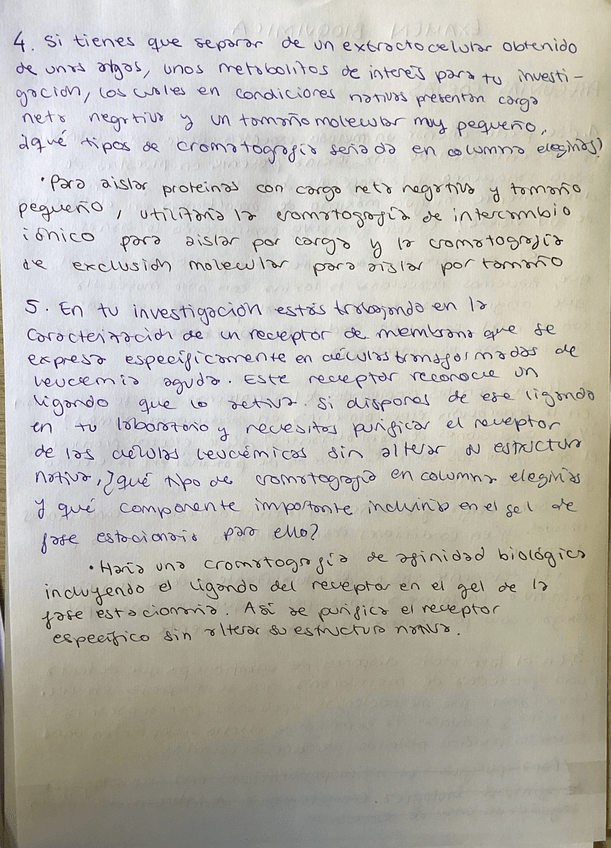 4. Si tienes que separar de un extracto celular obtenido
de unas algas, unos metabolitos de interés para tu investi-
gación, los cuales en condiciones nativas presentan carga
neta negativa y un tamaño molecular muy pequeño,
¿qué tipos de cromatografía seriada en columna elegirías?
• Para aislar proteínas con carga neta negativa y tamaño
pequeño, utilitaria la cromatografía de intercambio
iónico para aislar por carga y la cromatografía
de exclusión molecular para aislar por tamaño
5. En tu investigación estás trabajando en la
caracterización de un receptor de membrana que se
expresa específicamente en células transformadas de
leucemia aguda. Este receptor reconoce un
ligando que lo activa. Si dispones de ese ligando
en tu laboratorio y necesitas purificar el receptor
de las células leucémicas sin alterar su estructura
nativa, ¿qué tipo de cromatografía en columna elegirías
y qué componente importante incluirías en el gel de
fase estacionaria para ello?
• Haría una cromatografía de afinidad biológica
incluyendo el ligando del receptor en el gel de la
fase estacionaria. Así se purifica el receptor
específico sin alterar su estructura nativa.